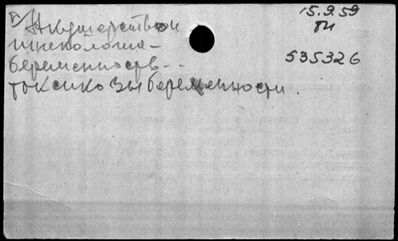 Акушерство и
гинекология -
беременность - -
токсикозы беременности.
15.9.59
535326